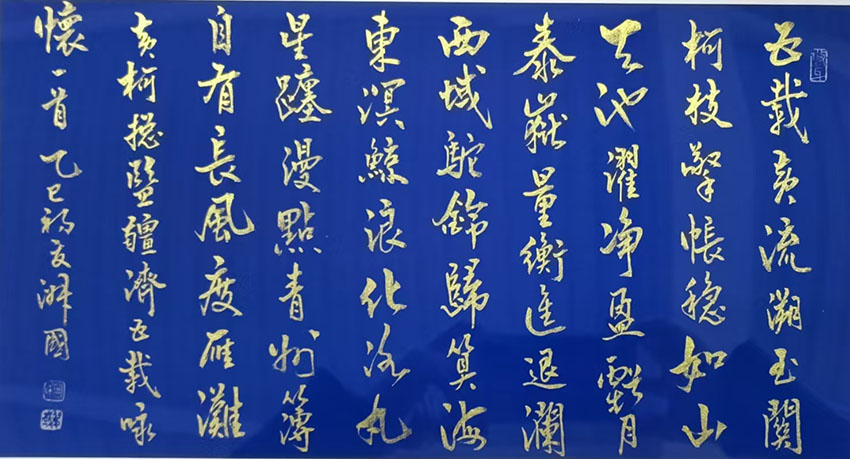 五載黃流溯玉關
柯枝擎帳穩如山
天池濯淨盈虧月
泰嶽量衡進退瀾
西域駝鈴歸算海
東溟鯨浪化丸
星躔漫點青州簿
自有長風度雁灘
黃柯總監疆濟五載詠
懷一首 乙巳初夏國